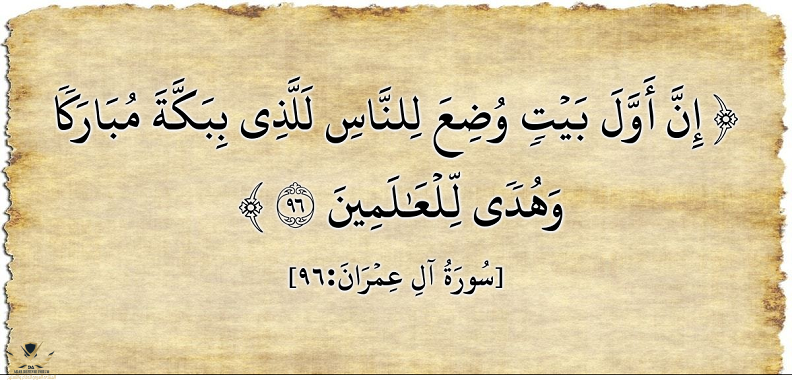 ﴿ إِنَّ أَوَّلَ بَيْتٍ وُضِعَ لِلنَّاسِ لَلَّذِى بِبَكَّةَ مُبَارَكًا
وَهُدًى لِّلْعَـٰلَمِينَ ٩٦ ﴾
[سُورَةُ آلِ عِمْرَانَ:٩٦]